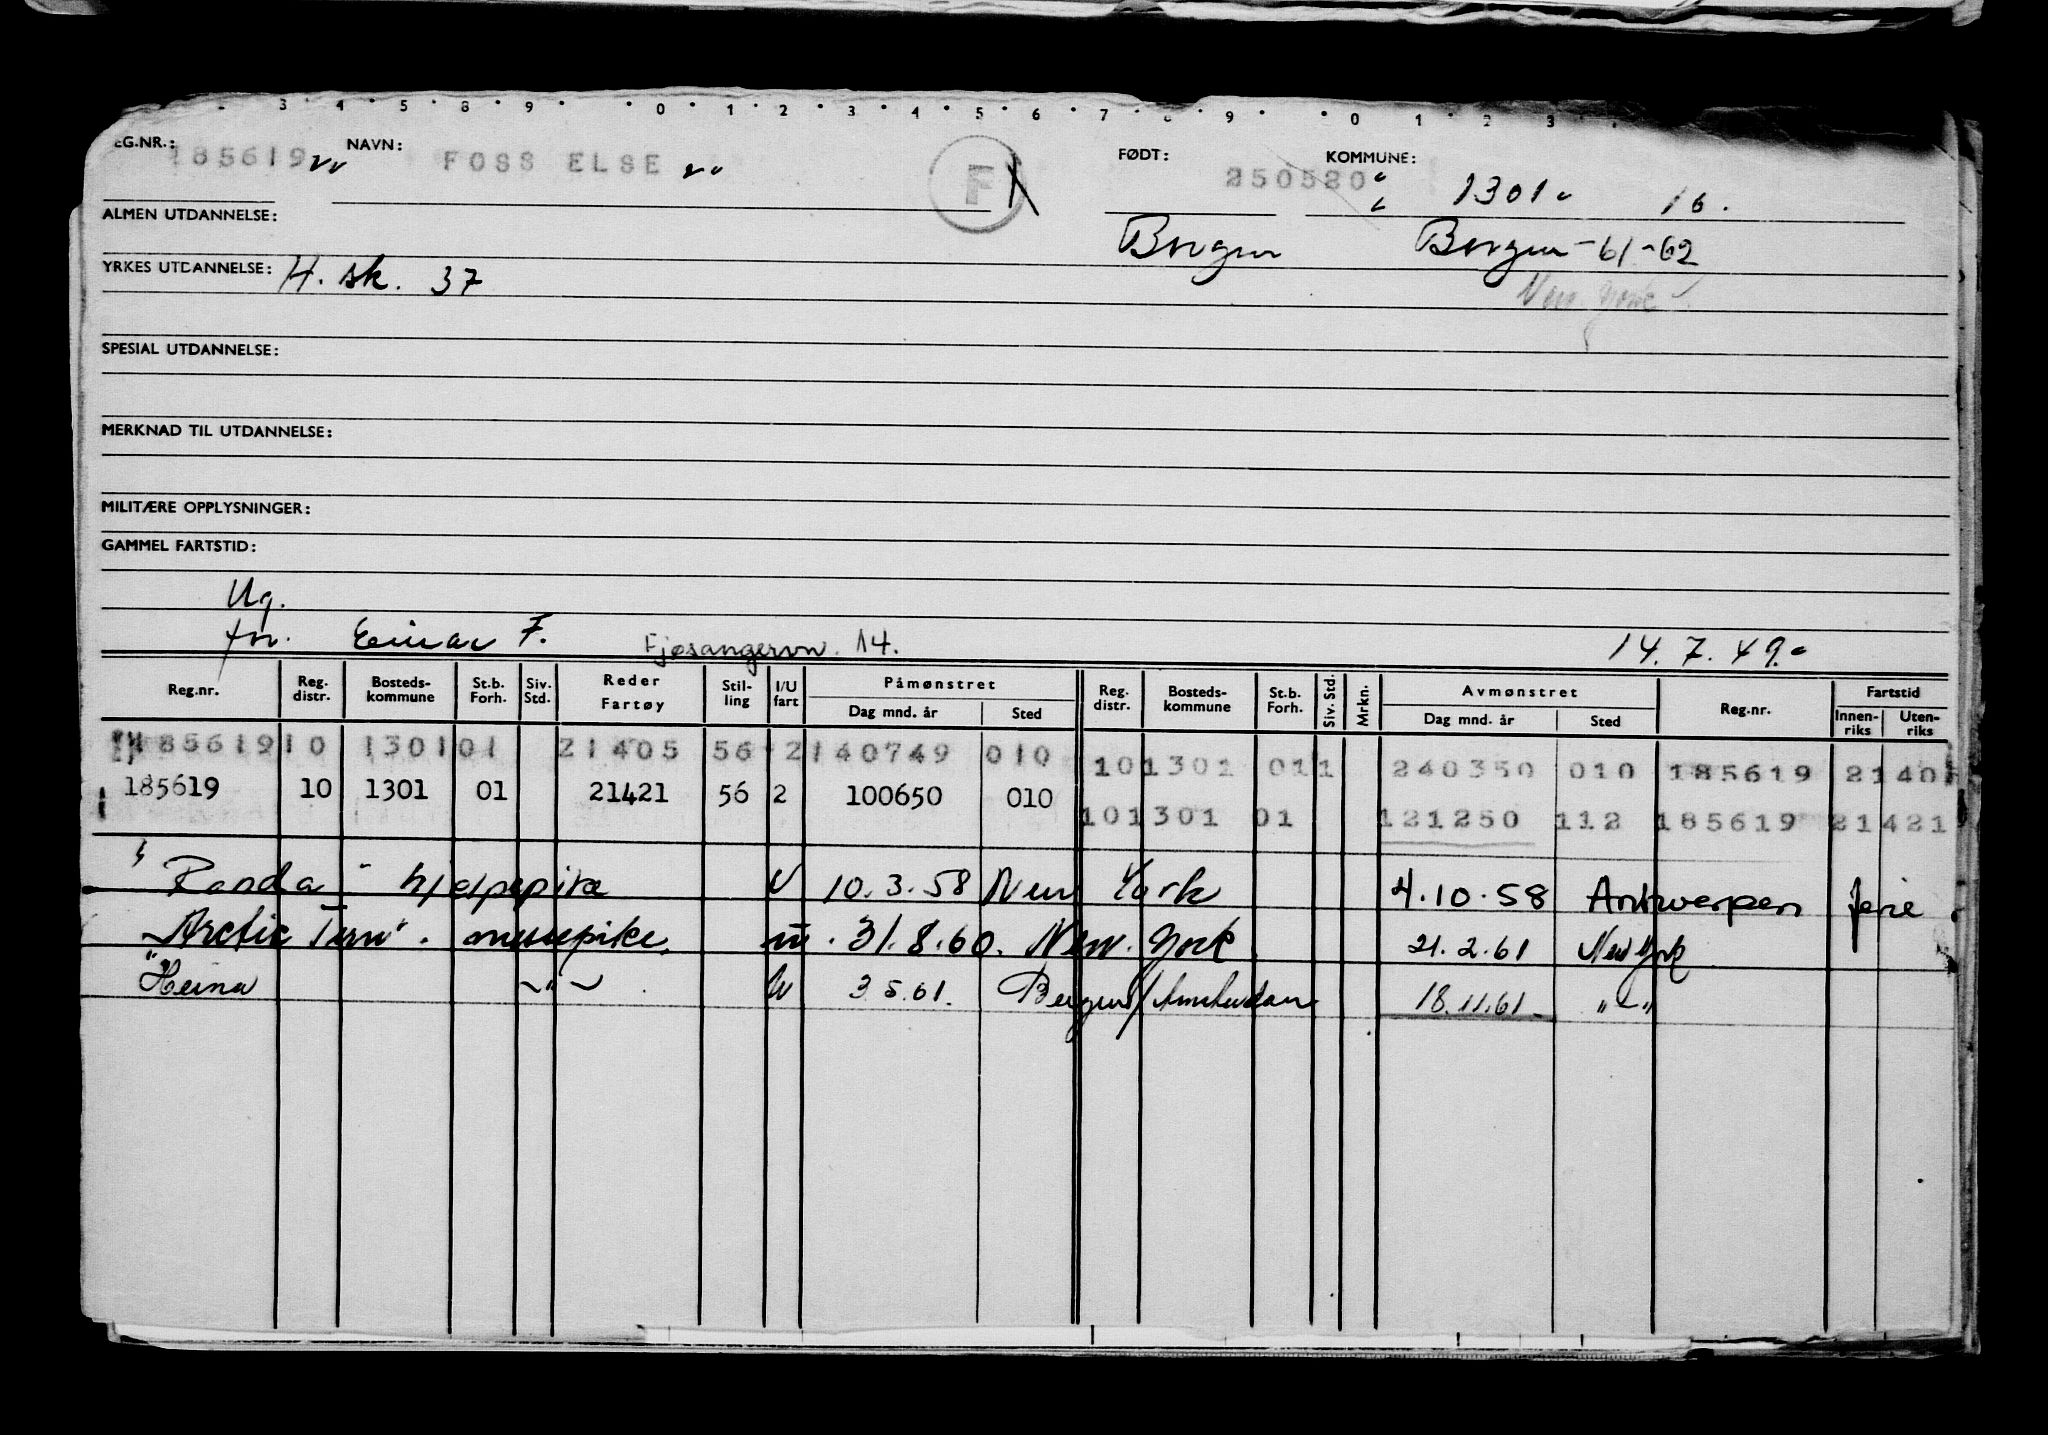 3 4 5 8 9 0 1 2 3 4 5 6 7 8 9 0 1 2 3
EG.NR.: 185619 NAVN: FOSS ELSE F FØDT: 250520 KOMMUNE: 1301 16.
ALMEN UTDANNELSE: Bergen Bergen -61-62
YRKES UTDANNELSE: H. sk. 37 New York
SPESIAL UTDANNELSE:
MERKNAD TIL UTDANNELSE:
MILITÆRE OPPLYSNINGER:
GAMMEL FARTSTID:
Ug.
Einar F. Fjøsangervn. 14. 14.7.49.
Reg.nr. Reg. distr. Bosteds-kommune St.b. Forh. Siv. Std. Reder Fartøy Stil-ling I/U fart Påmønstret Dag mnd. år Sted Reg. distr. Bosteds-kommune St.b. Forh. Siv. Std. Mrkn. Avmønstret Dag mnd. år Sted Reg.nr. Fartstid Innen-riks Uten-riks
185619 10 1301 01 21405 56 2 140749 010 10 1301 01 1 240350 010 185619 21405
185619 10 1301 01 21421 56 2 100650 010 10 1301 01 121250 112 185619 21421
Randa - hjelpepike U 10.3.58 New York 4.10.58 Antwerpen ferie
"Arctic Tern". messepike. 31.8.60. New York 21.2.61 New York
"Heina -"- U 3.5.61. Bergen/Amsterdam 18.11.61 -"-